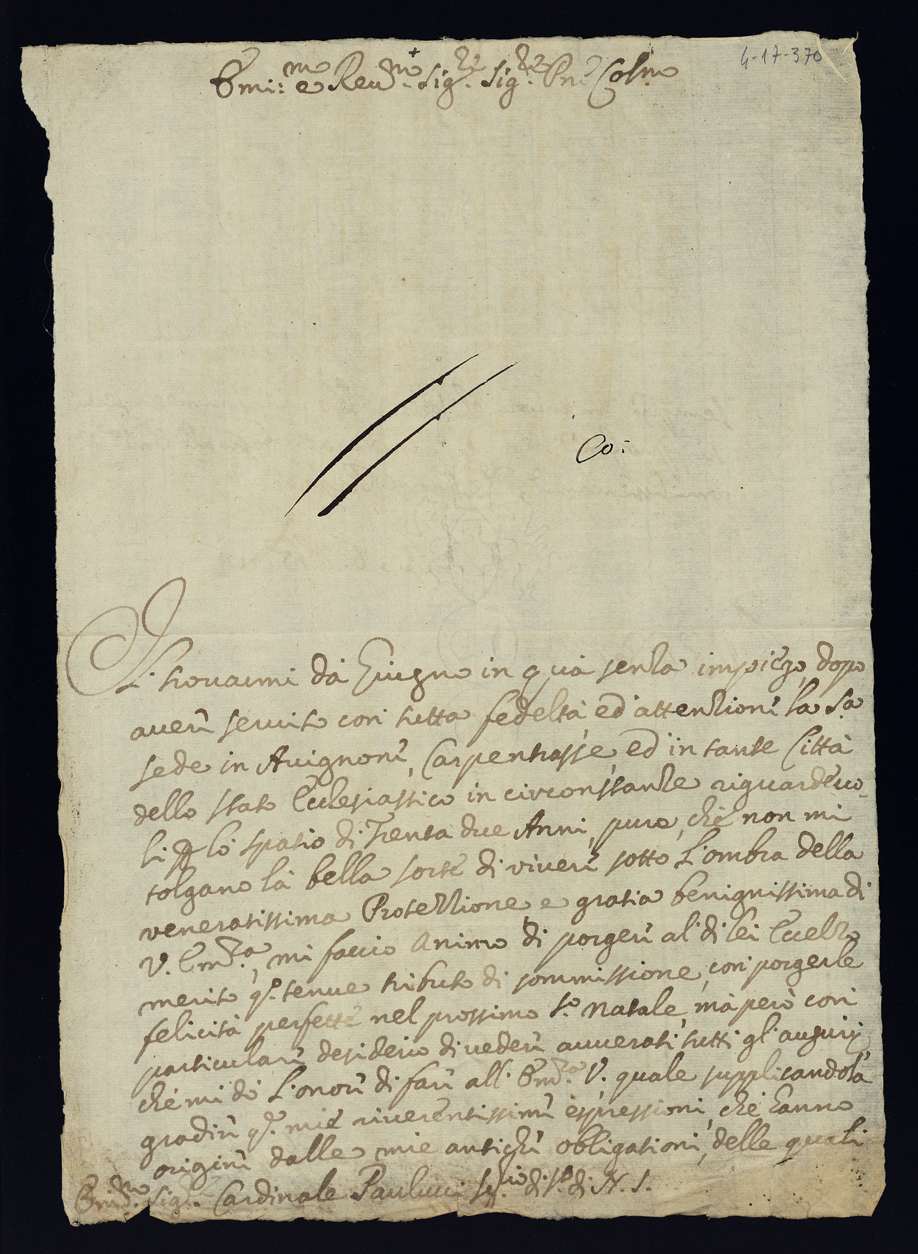 4-17-370
Emi:mo e Reu.mo Sig.re Sig.re Pne Colmo
Co:
Il trouarmi da Giugno in quà senza impiego, dopo
auer seruito con tutta fedeltà ed attenzioni la S.a
sede in Auignone, Carpentrasse, ed in tante Città
dello stato Ecclesiastico in circonstanze riguardeuo-
li per lo spatio di Trenta due Anni, pure, che non mi
tolgano la bella sorte di viuere sotto l'ombra della
veneratissima Protezzione e gratia benignissima di
V. Em.za, mi faccio Animo di porgere al di lei Eccelso
merito q.to tenue tributo di sommissione, con porgerle
felicità perfette nel prossimo S.to Natale, mà però con
particulare desiderio di vedere auuerati tutti gl'augurij
che mi dò l'onore di fare all'Em.za V. quale supplicandola
gradire q.e mie riuerentissime espressioni, che hanno
origine dalle mie antiche obligationi, delle quali
Em.mo Sig.r Cardinale Paulucci Seg.rio di S.to di N. S.